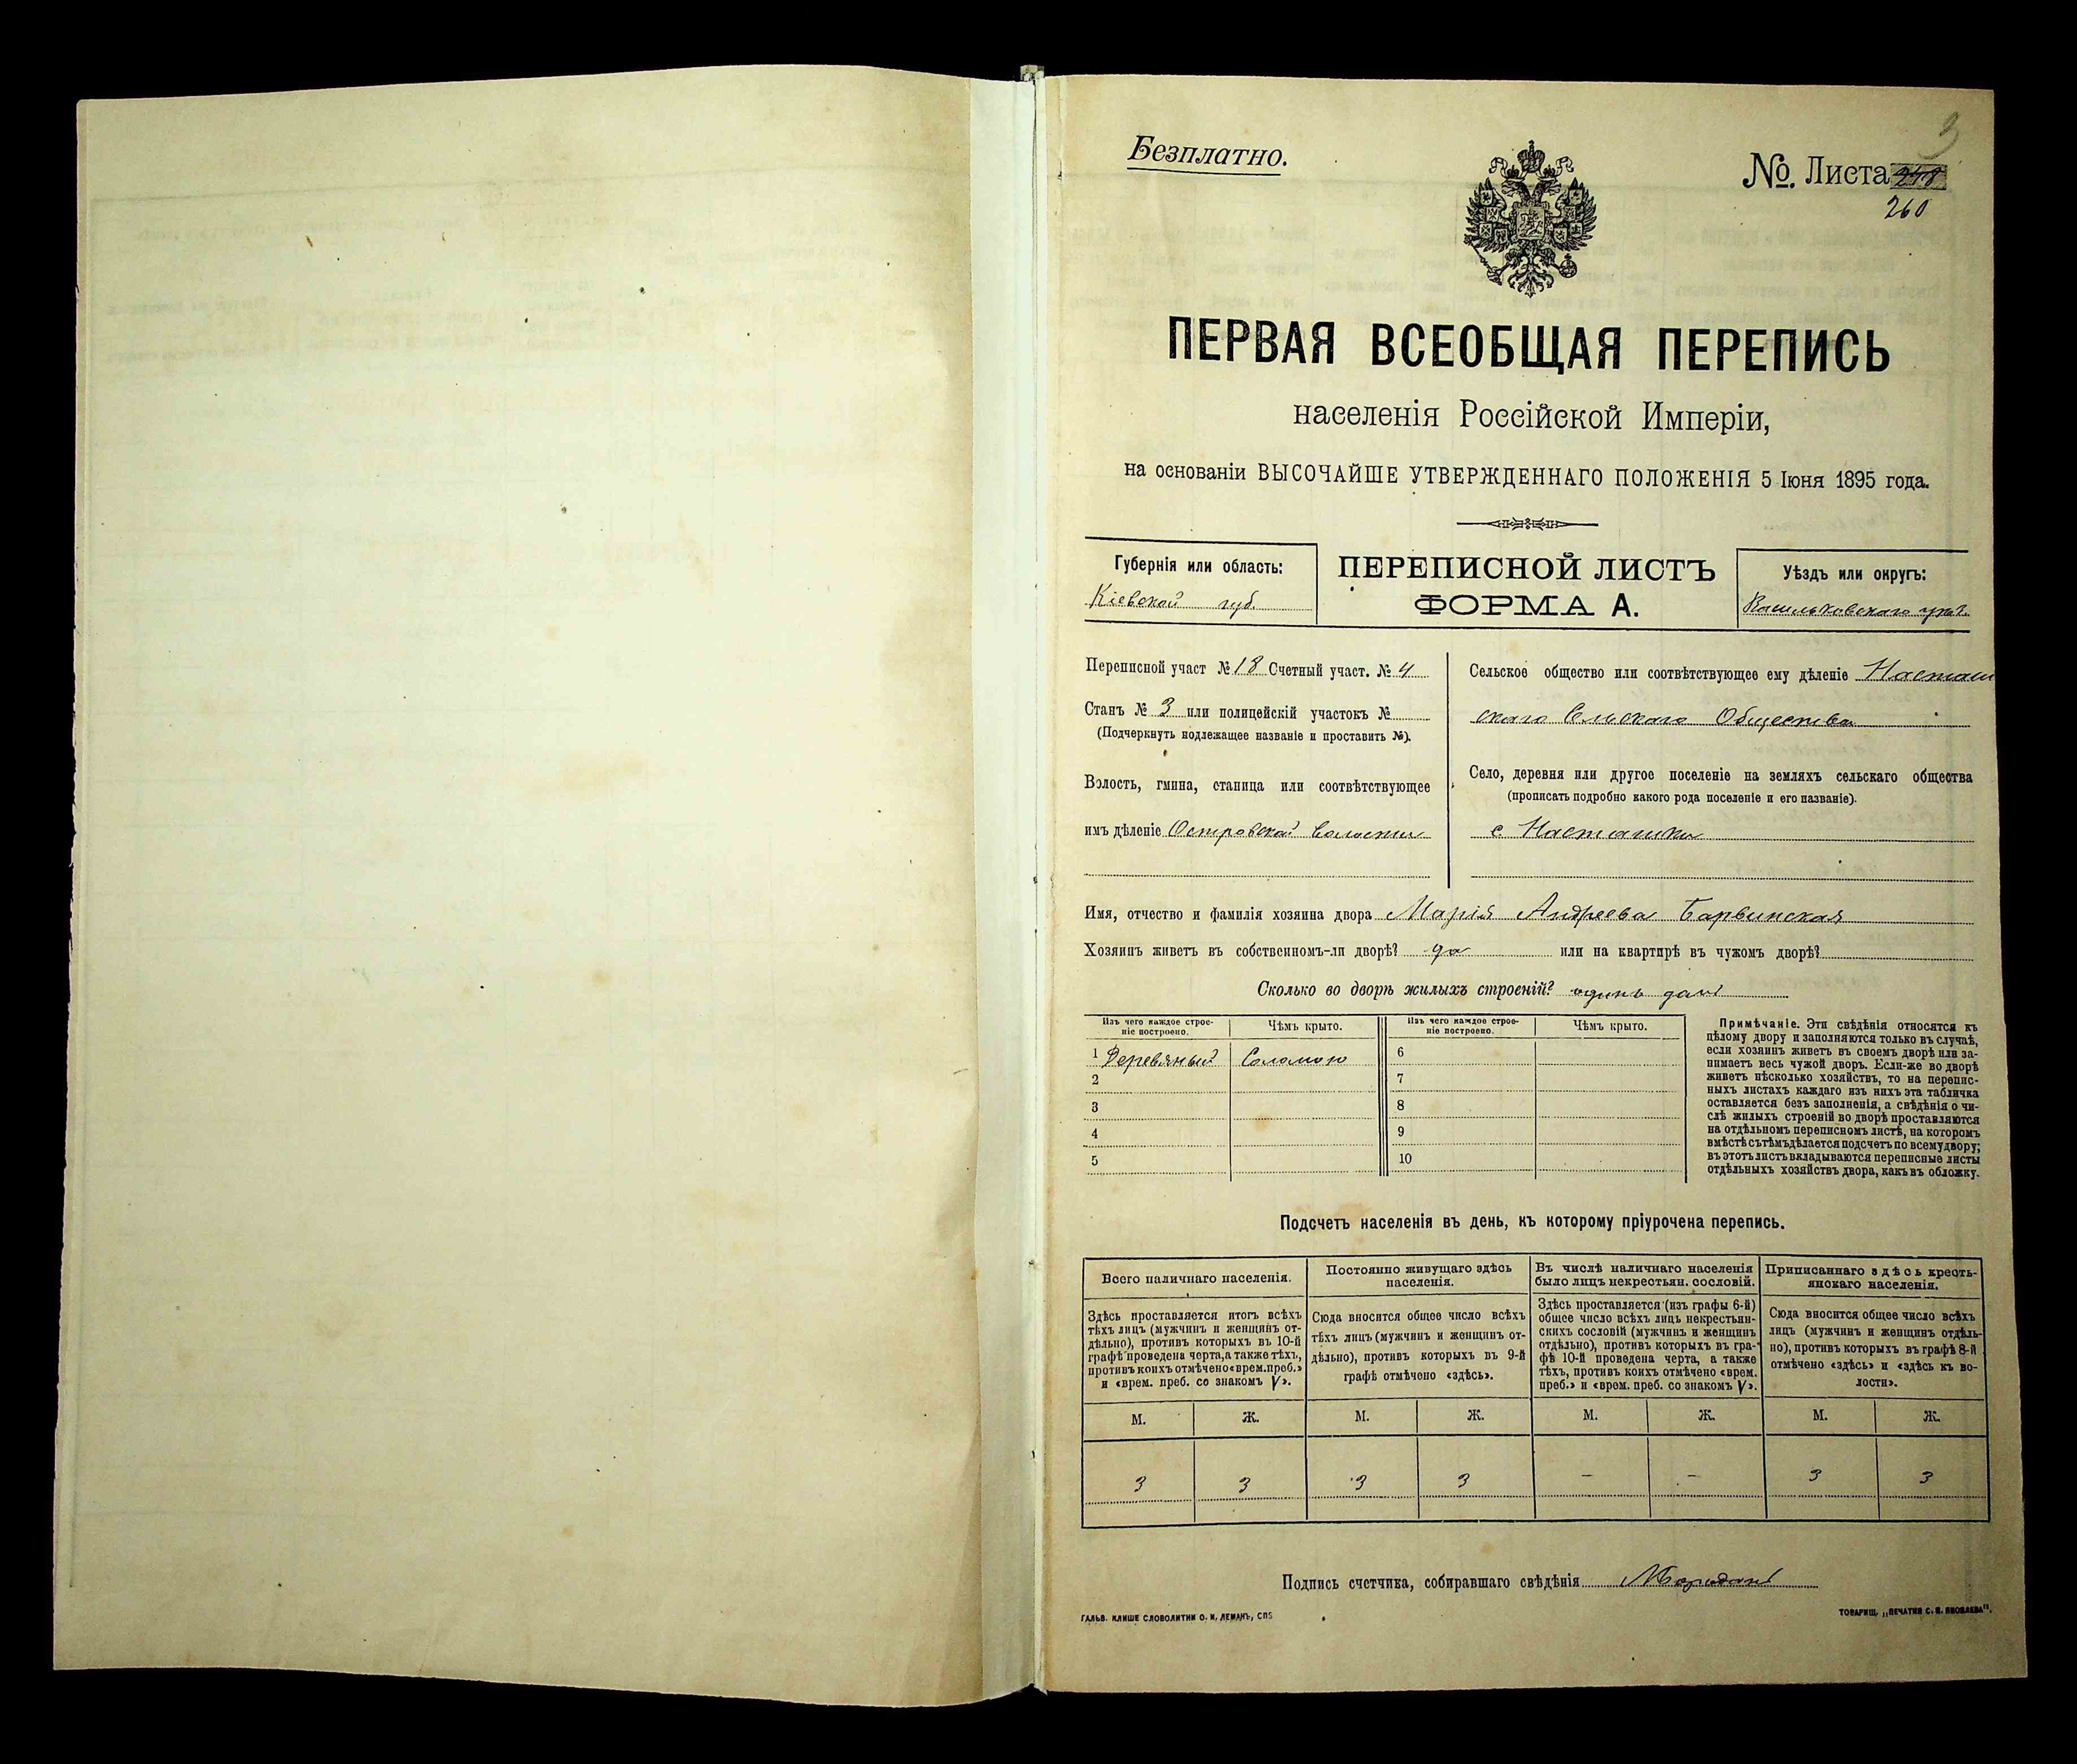 3
Безплатно.
№. Листа 248
260
ПЕРВАЯ ВСЕОБЩАЯ ПЕРЕПИСЬ
населенія Россійской Имперіи,
на основаніи ВЫСОЧАЙШЕ УТВЕРЖДЕННАГО ПОЛОЖЕНІЯ 5 Іюня 1895 года.
Губернія или область:
Кіевской губ.
ПЕРЕПИСНОЙ ЛИСТЪ
ФОРМА А.
Уѣздъ или округъ:
Васильковскаго уѣз.
Переписной участ № 18 Счетный участ. № 4
Станъ № 3 или полицейскій участокъ №
(Подчеркнуть подлежащее названіе и проставить №).
Волость, гмина, станица или соотвѣтствующее
имъ дѣленіе Островской волости
Сельское общество или соотвѣтствующее ему дѣленіе Насташ
скаго Сельскаго Общества
Село, деревня или другое поселеніе на земляхъ сельскаго общества
(прописать подробно какого рода поселеніе и его названіе).
с. Насташки
Имя, отчество и фамилія хозяина двора Марія Андреева Барвинская
Хозяинъ живетъ въ собственномъ-ли дворѣ? да или на квартирѣ въ чужомъ дворѣ?
Сколько во дворѣ жилыхъ строеній? одинъ домъ
Изъ чего каждое строе-
ніе построено.
Чѣмъ крыто.
Изъ чего каждое строе-
ніе построено.
Чѣмъ крыто.
1 Деревяный Соломою 6
2 7
3 8
4 9
5 10
Примѣчаніе. Эти свѣдѣнія относятся къ
цѣлому двору и заполняются только въ случаѣ,
если хозяинъ живетъ въ своемъ дворѣ или за-
нимаетъ весь чужой дворъ. Если-же во дворѣ
живетъ нѣсколько хозяйствъ, то на перепис-
ныхъ листахъ каждаго изъ нихъ эта табличка
оставляется безъ заполненія, а свѣдѣнія о чи-
слѣ жилыхъ строеній во дворѣ проставляются
на отдѣльномъ переписномъ листѣ, на которомъ
вмѣстѣ съ тѣмъ дѣлается подсчетъ по всему двору;
въ этотъ листъ вкладываются переписные листы
отдѣльныхъ хозяйствъ двора, какъ въ обложку.
Подсчетъ населенія въ день, къ которому пріурочена перепись.
Всего наличнаго населенія.
Здѣсь проставляется итогъ всѣхъ
тѣхъ лицъ (мужчинъ и женщинъ от-
дѣльно), противъ которыхъ въ 10-й
графѣ проведена черта, а также тѣхъ,
противъ коихъ отмѣчено «врем. преб.»
и «врем. преб. со знакомъ V».
Постоянно живущаго здѣсь
населенія.
Сюда вносится общее число всѣхъ
тѣхъ лицъ (мужчинъ и женщинъ от-
дѣльно), противъ которыхъ въ 9-й
графѣ отмѣчено «здѣсь».
Въ числѣ наличнаго населенія
было лицъ некрестьян. сословій.
Здѣсь проставляется (изъ графы 6-й)
общее число всѣхъ лицъ некрестьян-
скихъ сословій (мужчинъ и женщинъ
отдѣльно), противъ которыхъ въ гра-
фѣ 10-й проведена черта, а также
тѣхъ, противъ коихъ отмѣчено «врем.
преб.» и «врем. преб. со знакомъ V».
Приписаннаго здѣсь кресть-
янскаго населенія.
Сюда вносится общее число всѣхъ
лицъ (мужчинъ и женщинъ отдѣль-
но), противъ которыхъ въ графѣ 8-й
отмѣчено «здѣсь» и «здѣсь къ во-
лости».
М. Ж. М. Ж. М. Ж. М. Ж.
3 3 3 3 — — 3 3
Подпись счетчика, собиравшаго свѣдѣнія
ГАЛЬВ. КЛИШЕ СЛОВОЛИТНИ О. И. ЛЕМАНЪ, СПБ
ТОВАРИЩ. „ПЕЧАТНЯ С. П. ЯКОВЛЕВА“.